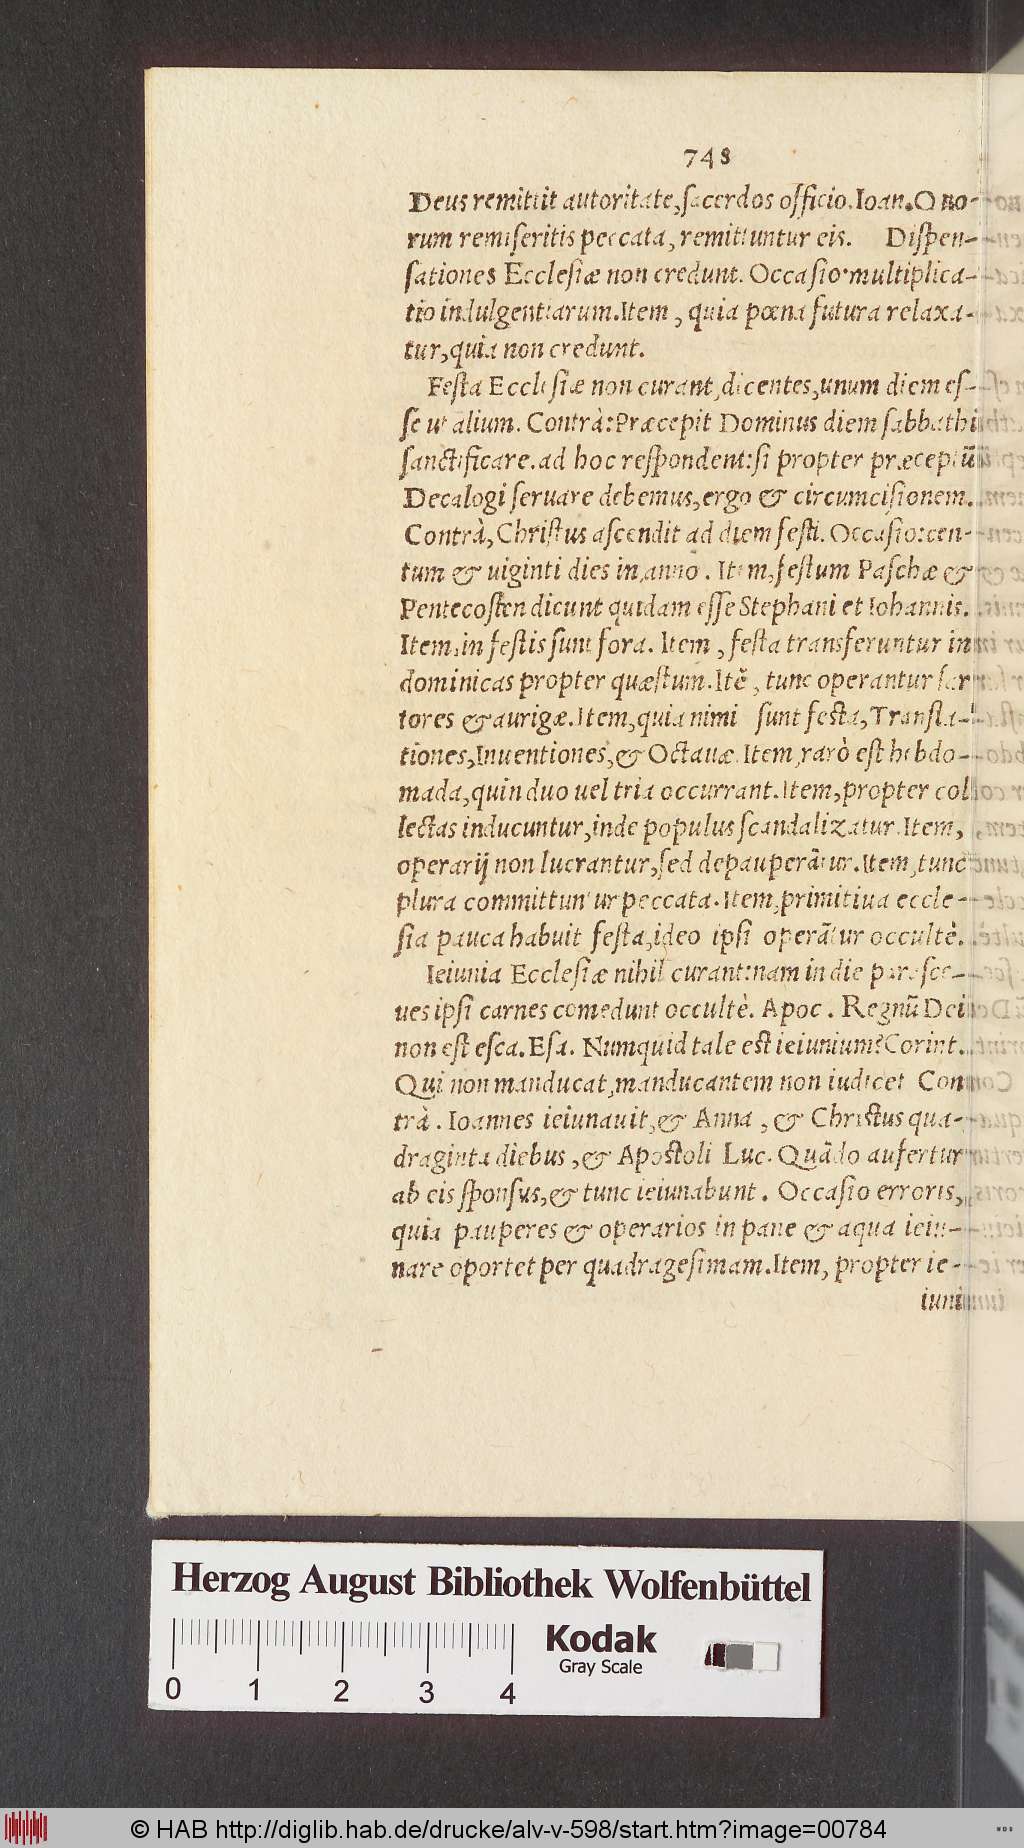 748
Deus remittit autoritate, sacerdos officio. Ioan. Quo-
rum remiseritis peccata, remittuntur eis. Dispen-
sationes Ecclesiæ non credunt. Occasio multiplica-
tio indulgentiarum. Item, quia pœna futura relaxa-
tur, quia non credunt.
Festa Ecclesiæ non curant, dicentes, unum diem es-
se ut alium. Contrà: Præcepit Dominus diem sabbathi
sanctificare. ad hoc respondent: si propter præceptū
Decalogi seruare debemus, ergo & circumcisionem.
Contrà, Christus ascendit ad diem festi. Occasio: cen-
tum & uiginti dies in anno. Item, festum Paschæ &
Pentecosten dicunt quidam esse Stephani et Iohannis.
Item, in festis sunt fora. Item, festa transferuntur in
dominicas propter quæstum. Itē, tunc operantur sar
tores & aurigæ. Item, quia nimi sunt festa, Transla-
tiones, Inuentiones, & Octauæ. Item, rarò est hebdo-
mada, quin duo uel tria occurrant. Item, propter col
lectas inducuntur, inde populus scandalizatur. Item,
operarij non lucrantur, sed depauperātur. Item, tunc
plura committuntur peccata. Item, primitiua eccle-
sia pauca habuit festa, ideo ipsi operātur occultè.
Ieiunia Ecclesiæ nihil curant: nam in die parasce-
ues ipsi carnes comedunt occultè. Apoc. Regnū Dei
non est esca. Esa. Numquid tale est ieiunium? Corint.
Qui non manducat, manducantem non iudicet Con
trà. Ioannes ieiunauit, & Anna, & Christus qua-
draginta diebus, & Apostoli Luc. Quādo aufertur
ab eis sponsus, & tunc ieiunabunt. Occasio erroris,
quia pauperes & operarios in pane & aqua ieiu-
nare oportet per quadragesimam. Item, propter ie-
iuni
Herzog August Bibliothek Wolfenbüttel
Kodak
Gray Scale
0 1 2 3 4
© HAB http://diglib.hab.de/drucke/alv-v-598/start.htm?image=00784